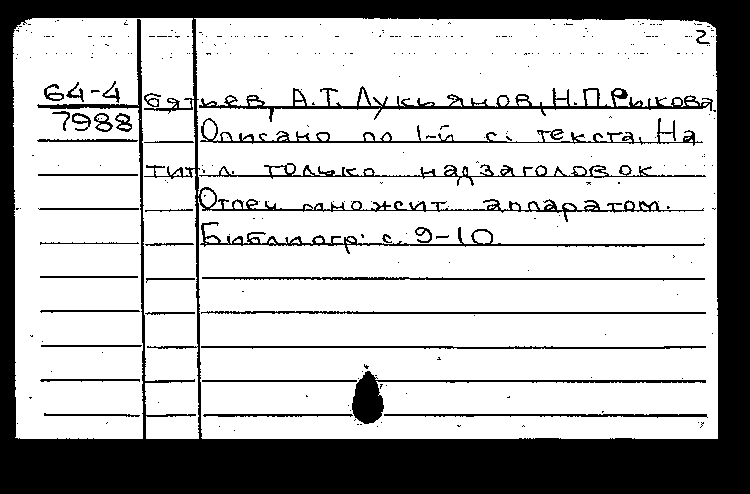 2
64-4 бятьев, А.Т. Лукьянов, Н.П. Рыкова
7988 Описано по 1-й с. текста. На
тит. л. только надзаголовок
Отпеч множит аппаратом.
Библиогр: с. 9-10